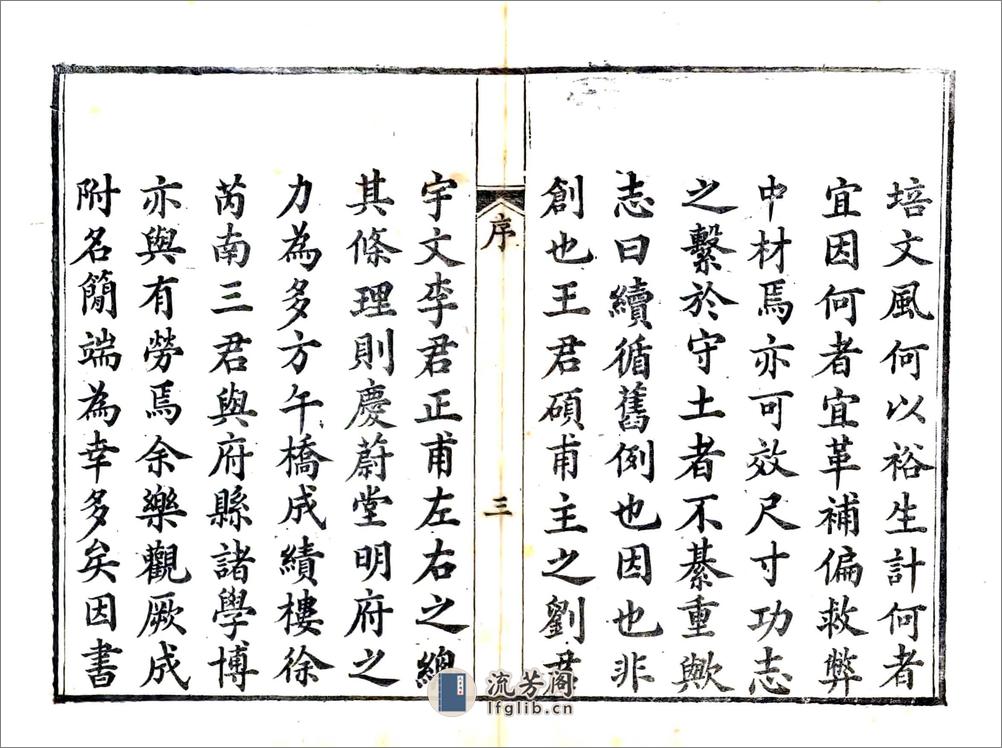 培文風何以裕生計何者
宜因何者宜革補偏救弊
中材焉亦可效尺寸功志
之繫於守土者不綦重歟
志曰續循舊例也因也非
創也王君碩甫主之劉君
序
三
宇文李君正甫左右之總
其條理則慶蔚堂明府之
力為多方午橋成績樓徐
芮南三君與府縣諸學博
亦與有勞焉余樂觀厥成
附名簡端為幸多矣因書
流芳阁
lfglib.cn